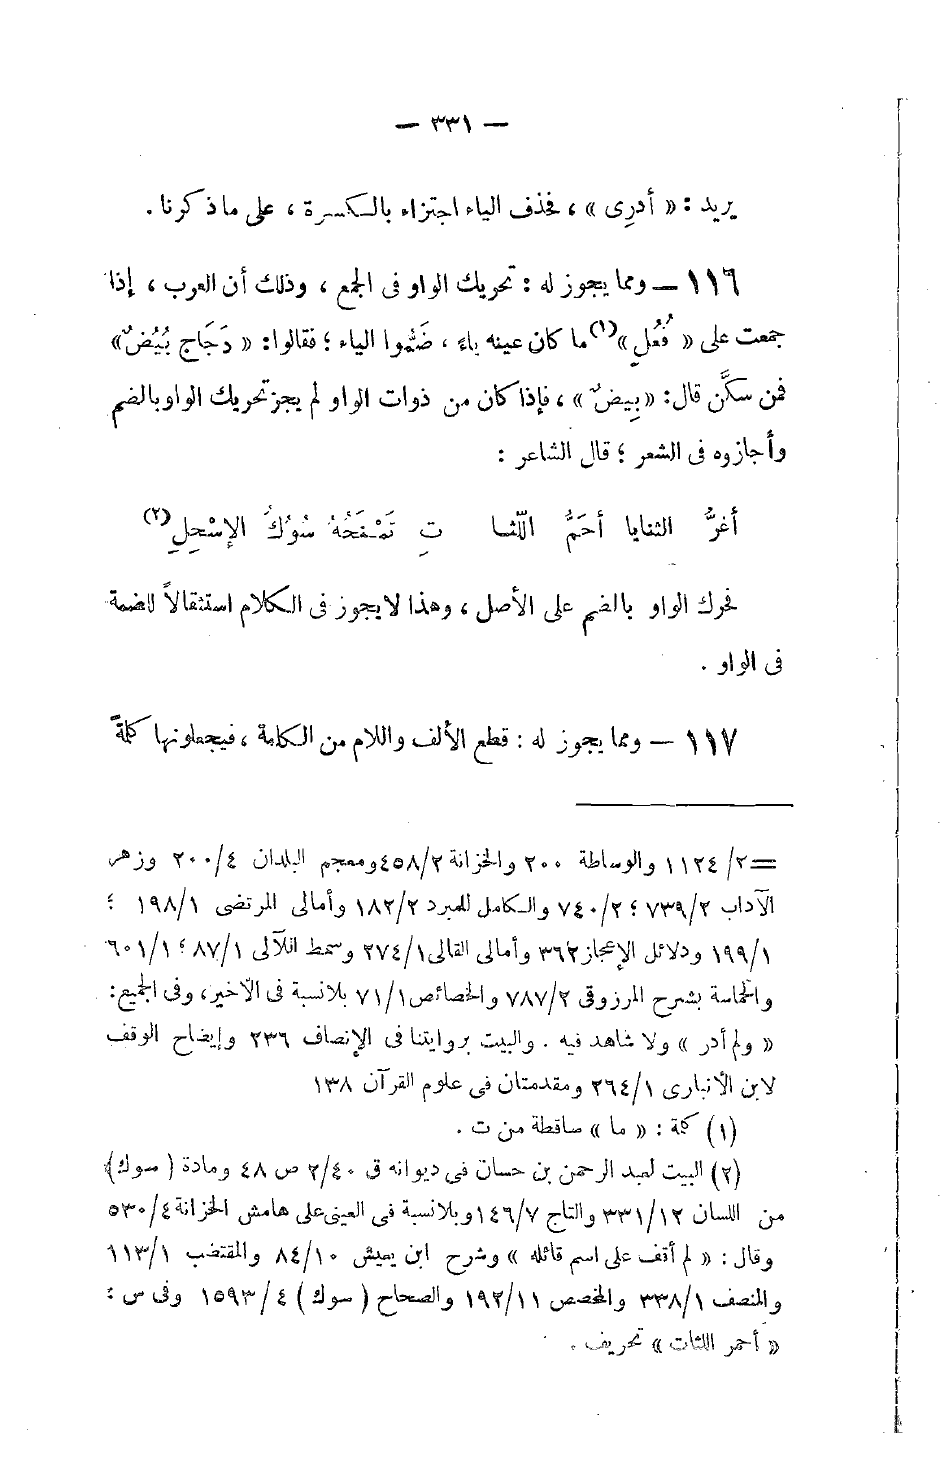 — ٣٣١ —
يريد : « أدرِى » ، فحذف الياء اجتزاء بالكسرة ، على ما ذكرنا .
١١٦ — ومما يجوز له : تحريك الواو فى الجمع ، وذلك أن العرب ، إذا
جمعت على « فُعُلٍ »(١) ما كان عينه ياءً ، ضَمُّوا الياء ؛ فقالوا : « دَجَاج بُيُضٌ »
فمن سكَّن قال : « بِيضٌ » ، فإذا كان من ذوات الواو لم يجز تحريك الواو بالضم
وأجازوه فى الشعر ؛ قال الشاعر :
أغرُّ الثنايا أحَمُّ اللّثا تِ تَمْنَحُهُ سُوُكُ الإسْحِلِ(٢)
فحرك الواو بالضم على الأصل ، وهذا لا يجوز فى الكلام استثقالاً للضمة
فى الواو .
١١٧ — ومما يجوز له : قطع الألف واللام من الكلمة ، فيجعلونها كلمةً
= ٢/ ١١٢٤ والوساطة ٢٠٠ والخزانة ٤٥٨/٢ ومعجم البلدان ٢٠٠/٤ وزهر
الآداب ٧٣٩/٢ ؛ ٧٤٠/٢ والكامل للمبرد ١٨٢/٢ وأمالى المرتضى ١٩٨/١ ؛
١٩٩/١ ودلائل الإعجاز ٣٦٢ وأمالى القالى ٢٧٤/١ وسمط اللآلى ٨٧/١ ؛ ٦٠١/١
والحماسة بشرح المرزوقى ٧٨٧/٢ والخصائص ٧١/١ بلا نسبة فى الأخير ، وفى الجميع :
« ولم أدر » ولا شاهد فيه . والبيت بروايتنا فى الإنصاف ٢٣٦ وإيضاح الوقف
لابن الأنبارى ٢٦٤/١ ومقدمتان فى علوم القرآن ١٣٨
(١) كلمة : « ما » ساقطة من ت .
(٢) البيت لعبد الرحمن بن حسان فى ديوانه ق ٢/٤٠ ص ٤٨ ومادة ( سوك )
من اللسان ٣٣١/١٢ والتاج ١٤٦/٧ وبلا نسبة فى العينى على هامش الخزانة ٥٣٠/٤
وقال : « لم أقف على اسم قائله » وشرح ابن يعيش ٨٤/١٠ والمقتضب ١١٣/١
والمنصف ٣٣٨/١ والمخصص ١٩٢/١١ والصحاح ( سوك ) ١٥٩٣/٤ وفى س :
« أحمر اللثات » تحريف .